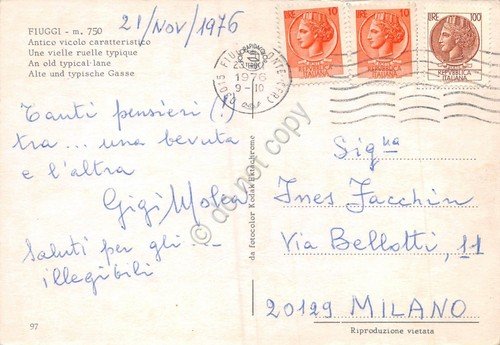 FIUGGI - m. 750
Antico vicolo caratteristico
Une vieille ruelle typique
An old typical lane
Alte und typische Gasse
21/NOV/1976
LIRE 10
LIRE 10
LIRE 100
REPUBBLICA
ITALIANA
1976
9-10
Tanti pensieri (!)
tra... una bevuta
e l'altra
Gigi Molea
Saluti per gli...
illegibili
da fotocolor Kodak Ektachrome
Sig.na
Ines Facchin
Via Bellotti, 11
20129 MILANO
97
Riproduzione vietata
do not copy